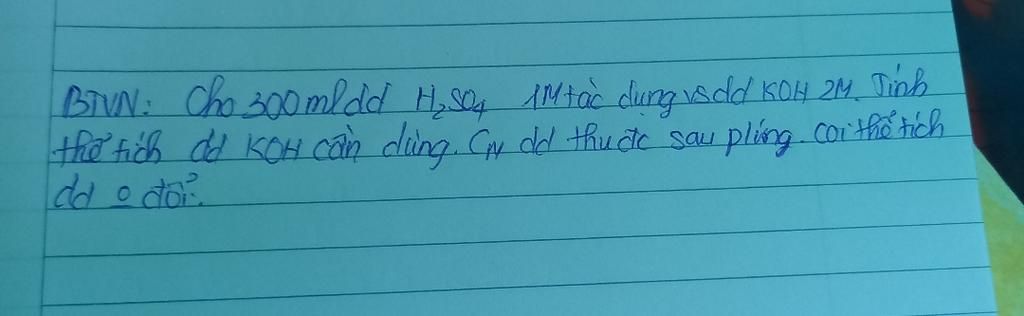 BTVN: Cho 300ml dd H₂SO₄ 1M tác dụng vs dd KOH 2M. Tính
thể tích dd KOH cần dùng. CN dd thu đc sau pứng. coi thể tích
dd o đổi.